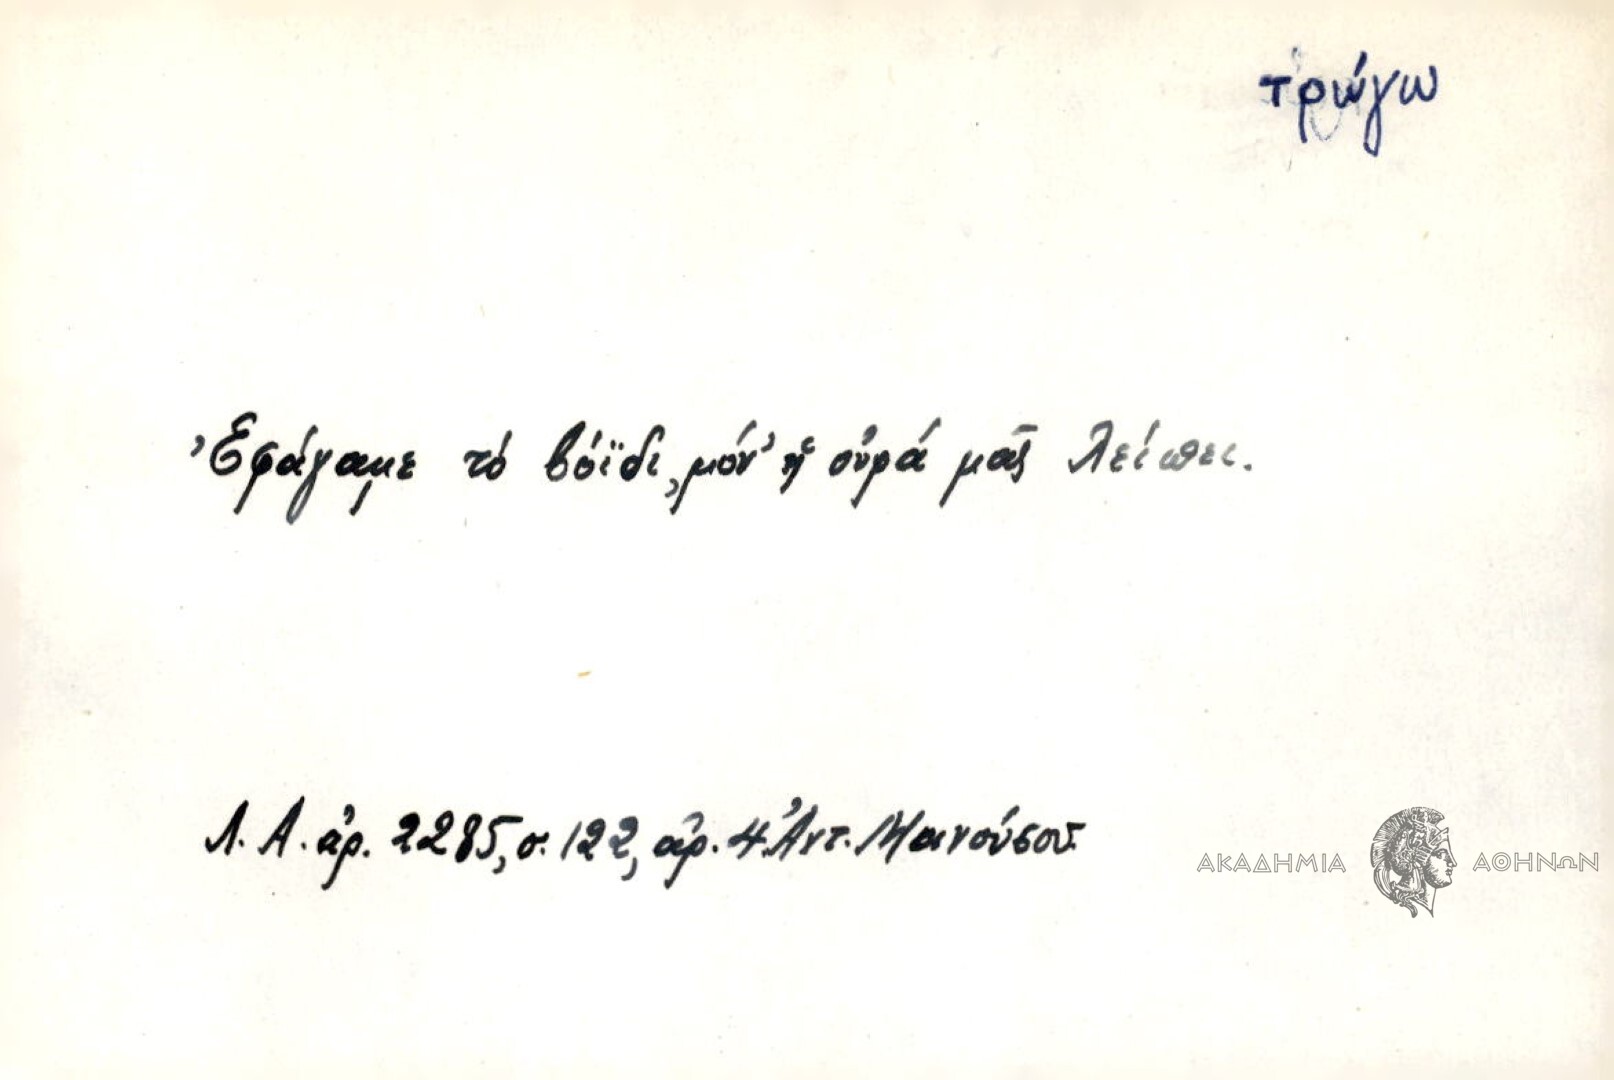 τρώγω
Ἐφάγαμε τό βόϊδι, μόν' ἡ οὐρά μᾶς λείπει.
Λ. Α. ἀρ. 2285, σ. 122, ἀρ. 4. Ἀντ. Μανούσου
ΑΚΑΔΗΜΙΑ ΑΘΗΝΩΝ